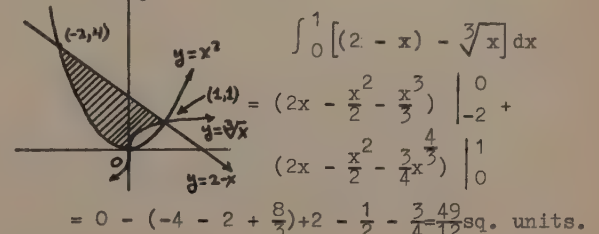 (-2,4)
y=x²
(1,1)
y=∛x
0
y=2-x
∫₀¹ [(2 - x) - ∛x] dx
= (2x - x²/2 - x³/3) |₋₂⁰ +
(2x - x²/2 - 3/4 x^(4/3)) |₀¹
= 0 - (-4 - 2 + 8/3)+2 - 1/2 - 3/4=49/12sq. units.